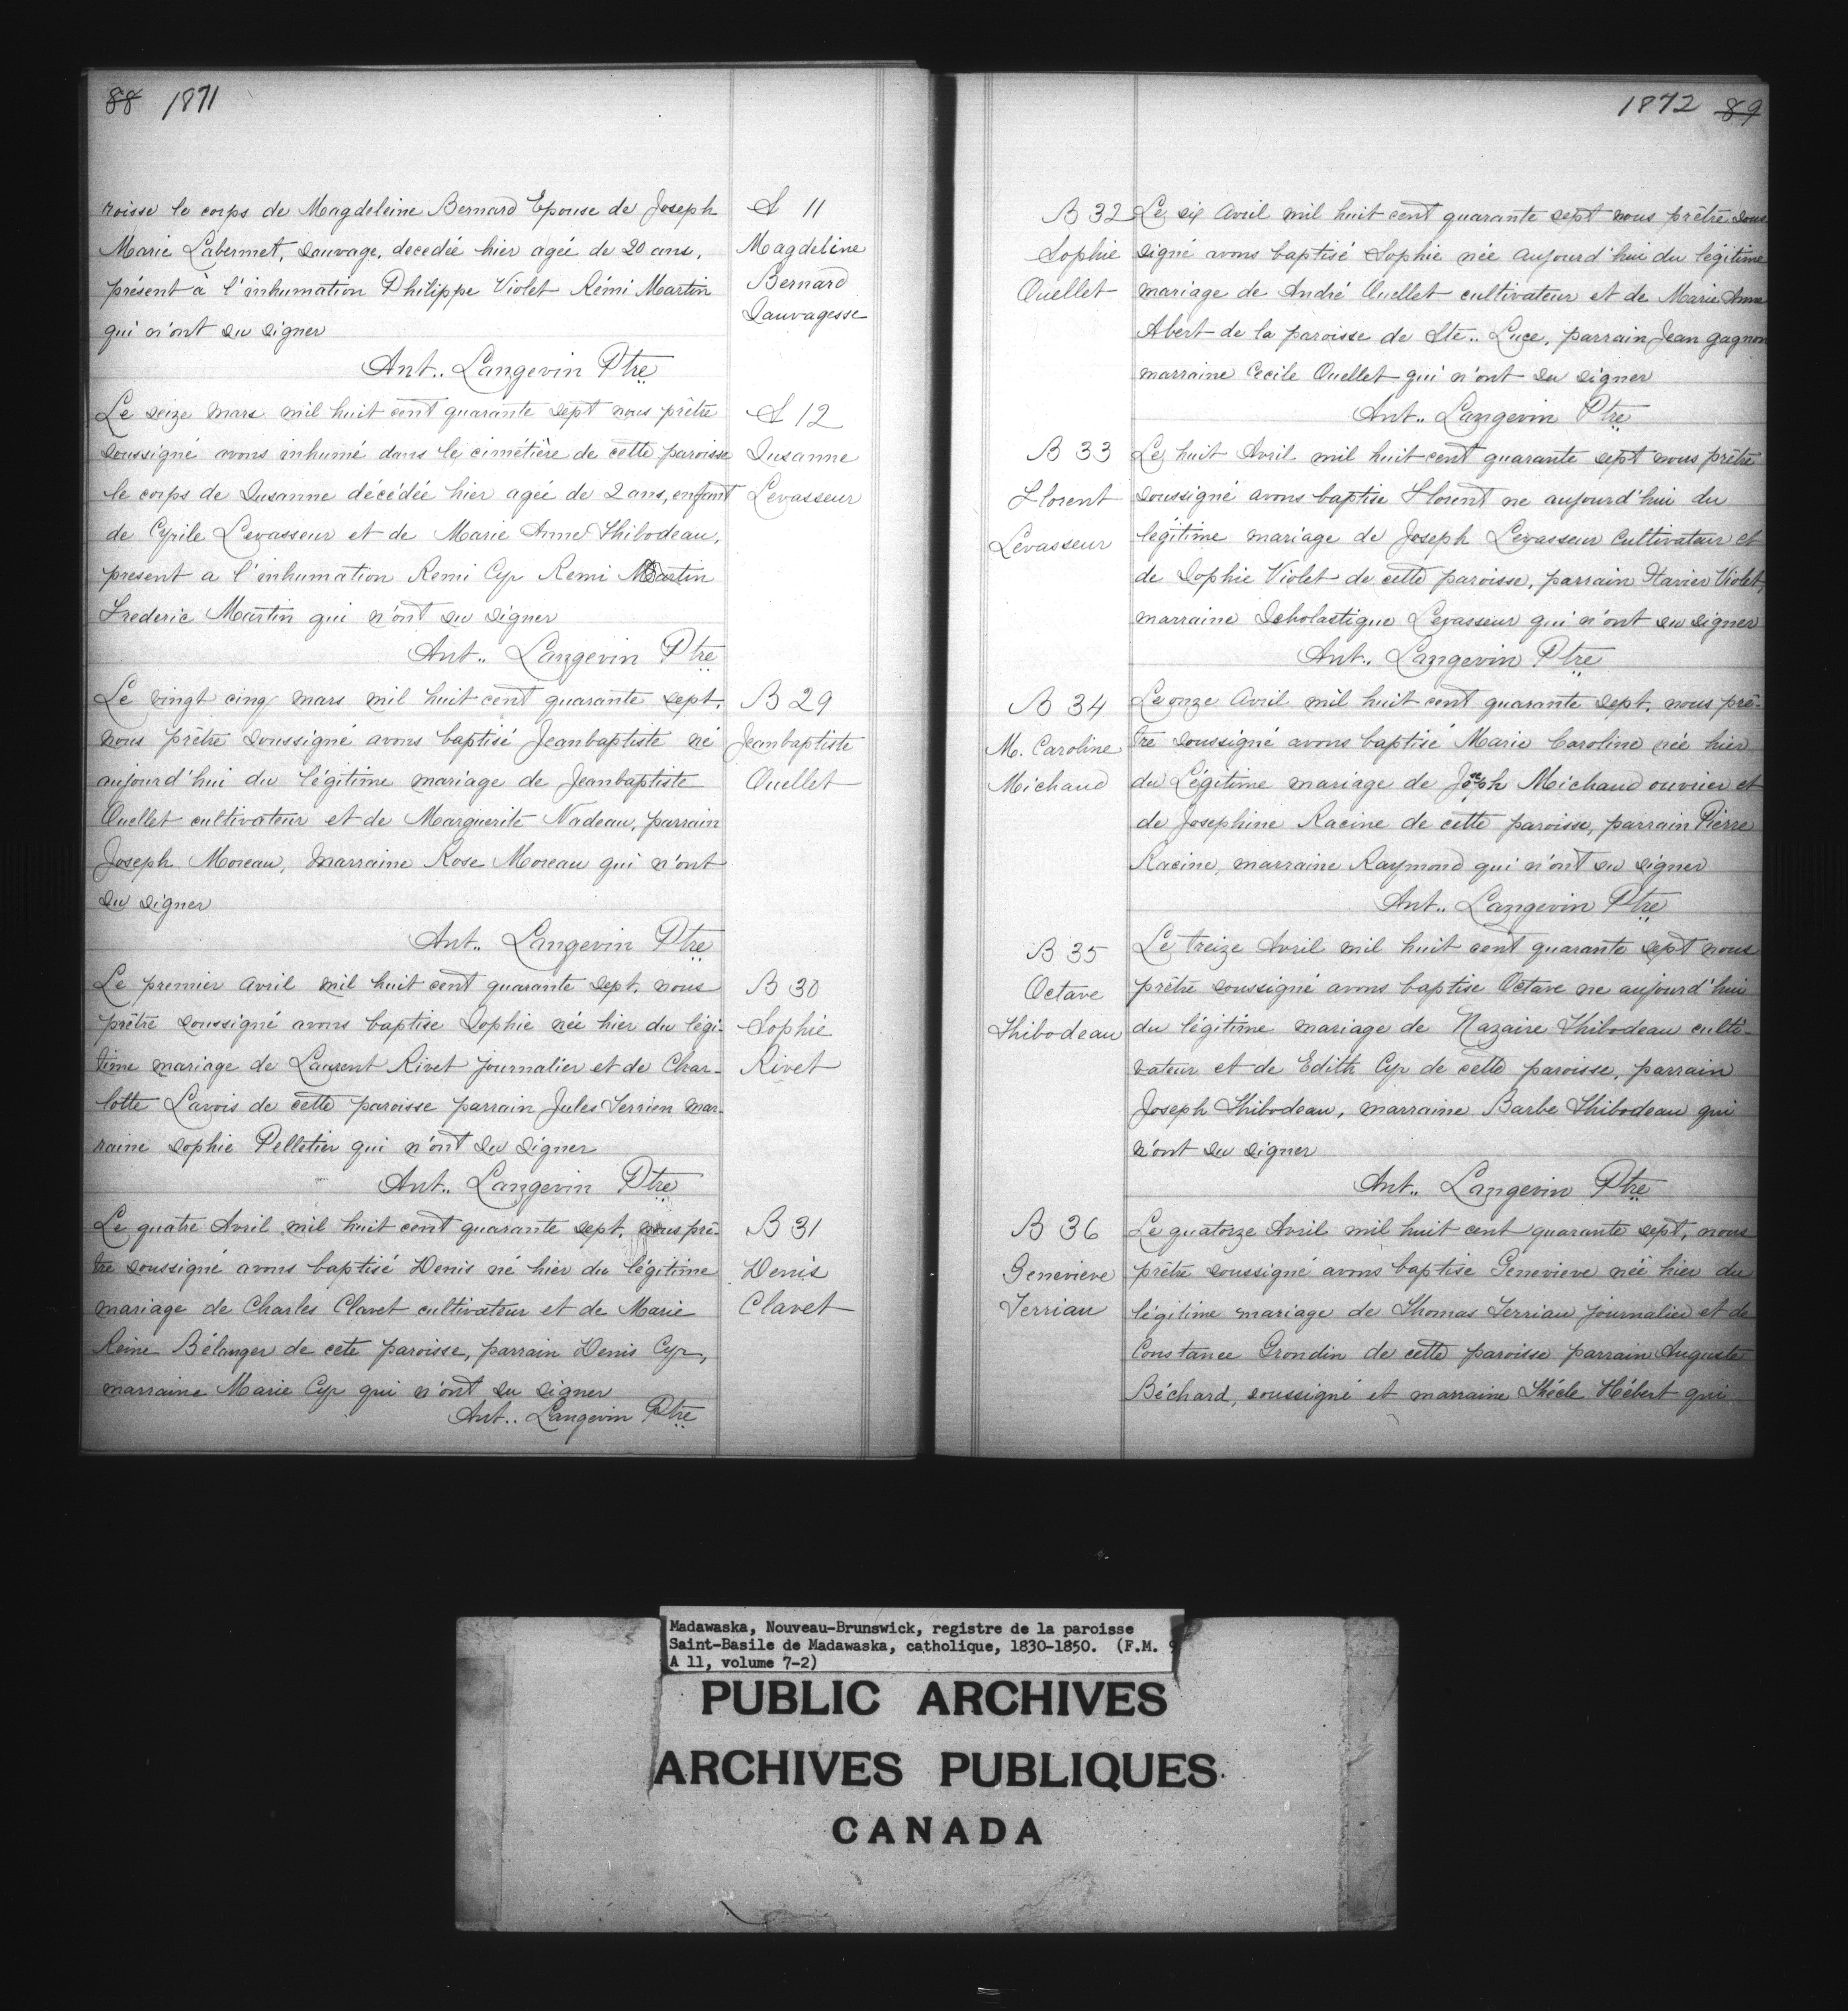 88 1871
roisse le corps de Magdeleine Bernard Epouse de Joseph
Marie Labermet, sauvage, decedée hier agée de 20 ans,
présent à l'inhumation Philippe Violet Rémi Martin
qui n'ont su signer
Ant.. Langevin Ptre
S 11
Magdeline
Bernard
Sauvagesse
Le seize mars mil huit cent quarante sept nous prêtre
soussigné avons inhumé dans le cimétière de cette paroisse
le corps de Susanne décédée hier agée de 2 ans, enfant
de Cyrile Levasseur et de Marie Anne Thibodeau,
present a l'inhumation Remi Cyr Remi Martin
Frederic Martin qui n'ont su signer
Ant.. Langevin Ptre
S 12
Susanne
Levasseur
Le vingt cinq mars mil huit cent quarante sept,
nous prêtre soussigné avons baptisé Jeanbaptiste né
aujourd'hui du légitime mariage de Jeanbaptiste
Ouellet cultivateur et de Marguerite Nadeau, parrain
Joseph Moreau, marraine Rose Moreau qui n'ont
su signer
Ant.. Langevin Ptre
B 29
Jeanbaptiste
Ouellet
Le premier avril mil huit cent quarante sept, nous
prêtre soussigné avons baptise Sophie née hier du légi-
time mariage de Laurent Rivet journalier et de Char-
lotte Lavois de cette paroisse parrain Jules Terrien mar-
raine sophie Pelletier qui n'ont su signer
Ant.. Langevin Ptre
B 30
Sophie
Rivet
Le quatre Avril mil huit cent quarante sept, nous prê-
tre soussigné avons baptisé Denis né hier du légitime
mariage de Charles Clavet cultivateur et de Marie
Reine Bélanger de cete paroisse, parrain Denis Cyr,
marraine Marie Cyr qui n'ont su signer
Ant.. Langevin Ptre
B 31
Denis
Clavet
1872 89
B 32
Sophie
Ouellet
Le six Avril mil huit cent quarante sept nous prêtre sous
signé avons baptisé Sophie née aujourd'hui du légitime
mariage de André Ouellet cultivateur et de Marie Anne
Abert de la paroisse de Ste.. Luce, parrain Jean gagnon
marraine Cecile Ouellet qui n'ont su signer
Ant.. Langevin Ptre
B 33
Florent
Levasseur
Le huit Avril mil huit cent quarante sept nous prêtre
soussigné avons baptise Florent ne aujourd'hui du
légitime mariage de Joseph Levasseur cultivateur et
de Sophie Violet de cette paroisse, parrain Xavier Violet,
marraine Scholastique Levasseur qui n'ont su signer
Ant.. Langevin Ptre
B 34
M. Caroline
Michaud
Le onze Avril mil huit cent quarante sept, nous prê-
tre soussigné avons baptisé Marie Caroline née hier
du Légitime mariage de Joseph Michaud ouvrier et
de Josephine Racine de cette paroisse, parrain Pierre
Racine, marraine Raymond qui n'ont su signer
Ant.. Langevin Ptre
B 35
Octave
Thibodeau
Le treize Avril mil huit cent quarante sept nous
prêtre soussigné avons baptise Octave ne aujourd'hui
du légitime mariage de Nazaire Thibodeau culti-
vateur et de Edith Cyr de cette paroisse, parrain
Joseph Thibodeau, marraine Barbe Thibodeau qui
n'ont su signer
Ant.. Langevin Ptre
B 36
Genevieve
Terriau
Le quatorze Avril mil huit cent quarante sept, nous
prêtre soussigné avons baptise Genevieve née hier du
légitime mariage de Thomas Terriau journalier et de
Constance Grondin de cette paroisse parrain Auguste
Béchard, soussigné et marraine Thécle Hébert qui
Madawaska, Nouveau-Brunswick, registre de la paroisse
Saint-Basile de Madawaska, catholique, 1830-1850. (F.M. 9
A 11, volume 7-2)
PUBLIC ARCHIVES
ARCHIVES PUBLIQUES
CANADA